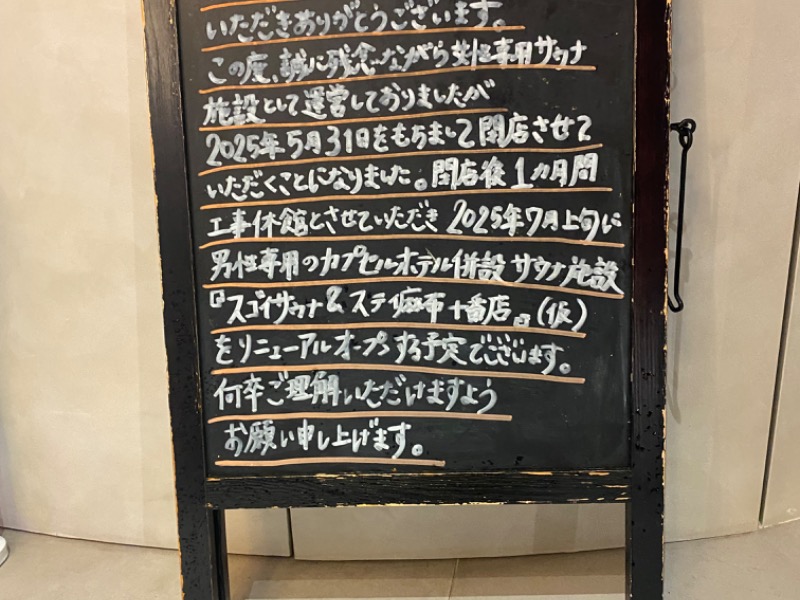 いただきありがとうございます。
この度、誠に残念ながら女性専用サウナ
施設として運営しておりましたが
2025年5月31日をもちまして閉店させて
いただくことになりました。閉店後1カ月間
工事休館とさせていただき2025年7月上旬に
男性専用のカプセルホテル併設サウナ施設
『スゴイサウナ&ステイ麻布十番店』(仮)
をリニューアルオープンする予定でございます。
何卒ご理解いただけますよう
お願い申し上げます。